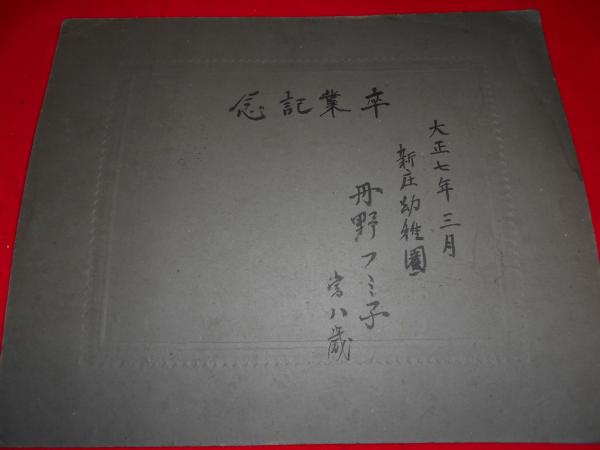 卒業記念
大正七年三月
新庄幼稚園
丹野フミ子
当八歳